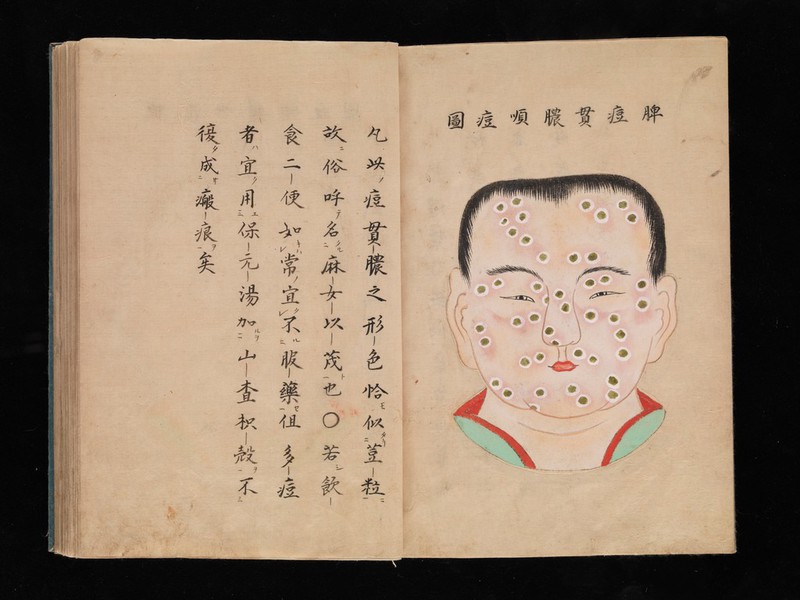 脾痘貫膿順痘圖
凡此痘貫膿之形色恰似荳粒
故俗呼名麻女以茂也〇若飲
食二便如常宜不服藥但多痘
者宜用保元湯加山査枳殻不
後成瘢痕矣